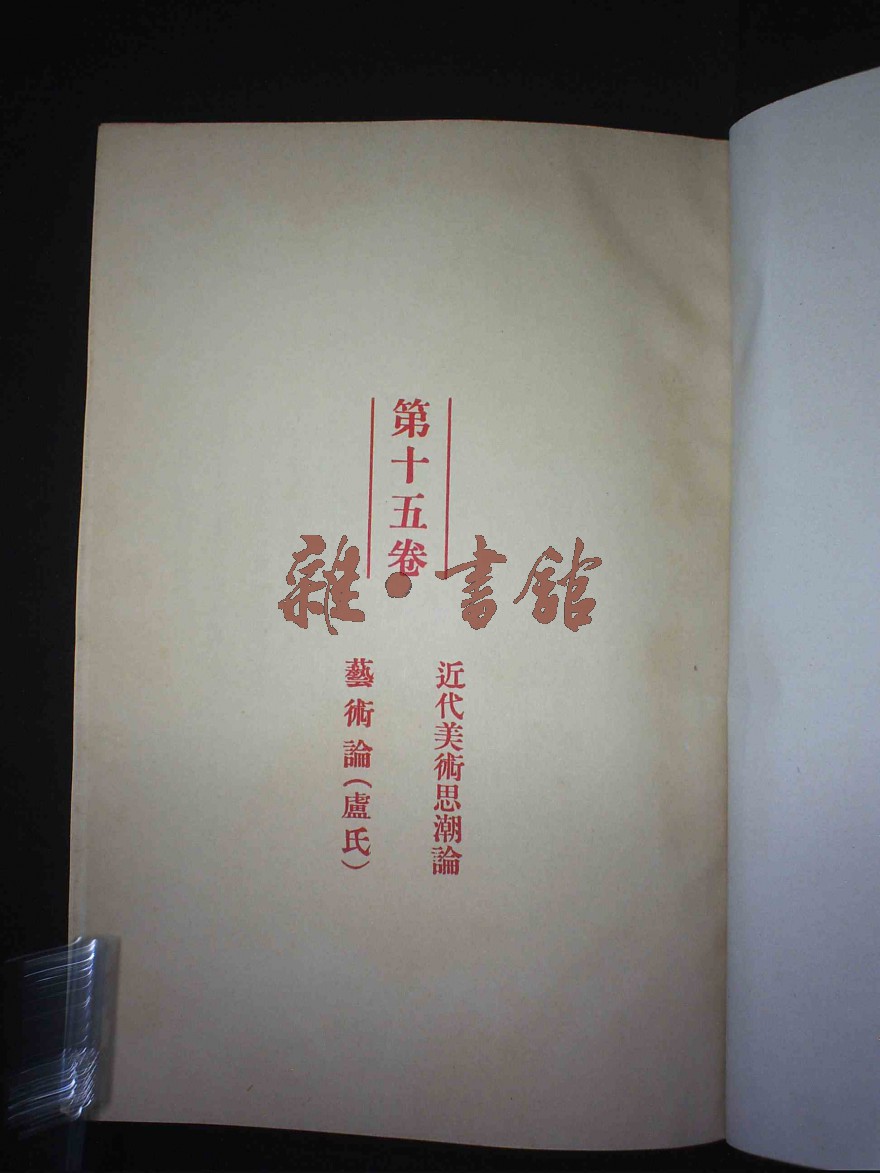 第十五卷
雜·書館
近代美術思潮論
藝術論（盧氏）